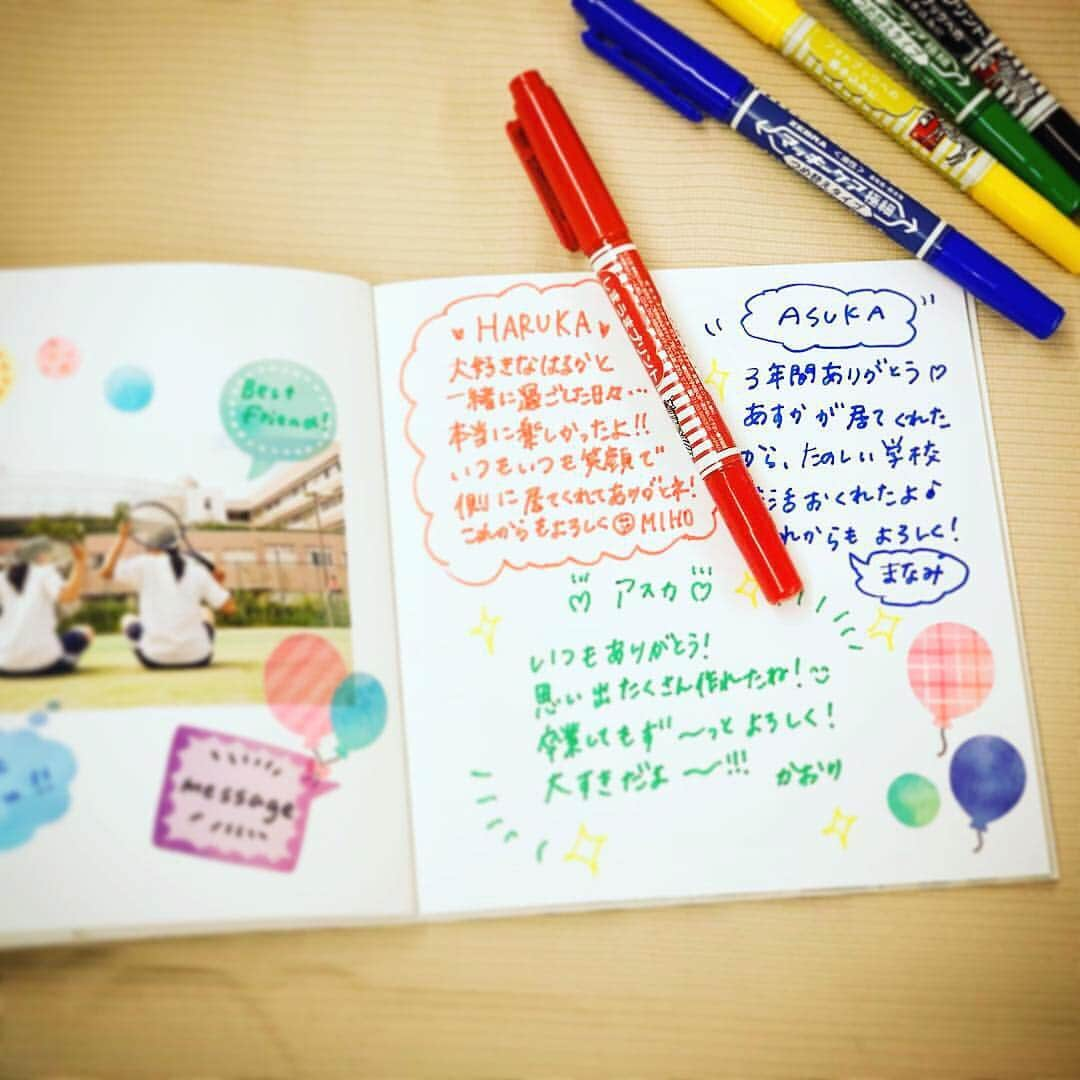 Best
Friend!
message
HARUKA
大好きなはるかと
一緒に過ごした日々…
本当に楽しかったよ!!
いつもいつも笑顔で
側に居てくれてありがとネ!
これからもよろしく MIHO
ASUKA
3年間ありがとう♡
あすかが居てくれた
から、たのしい学校
活おくれたよ♪
れからも よろしく!
まなみ
アスカ
いつもありがとう!
思い出たくさん作れたね!
卒業してもず〜っと よろしく!
大すきだよ〜!!! かおり
ZEBRA
マッキープリント
つめ替えタイプ